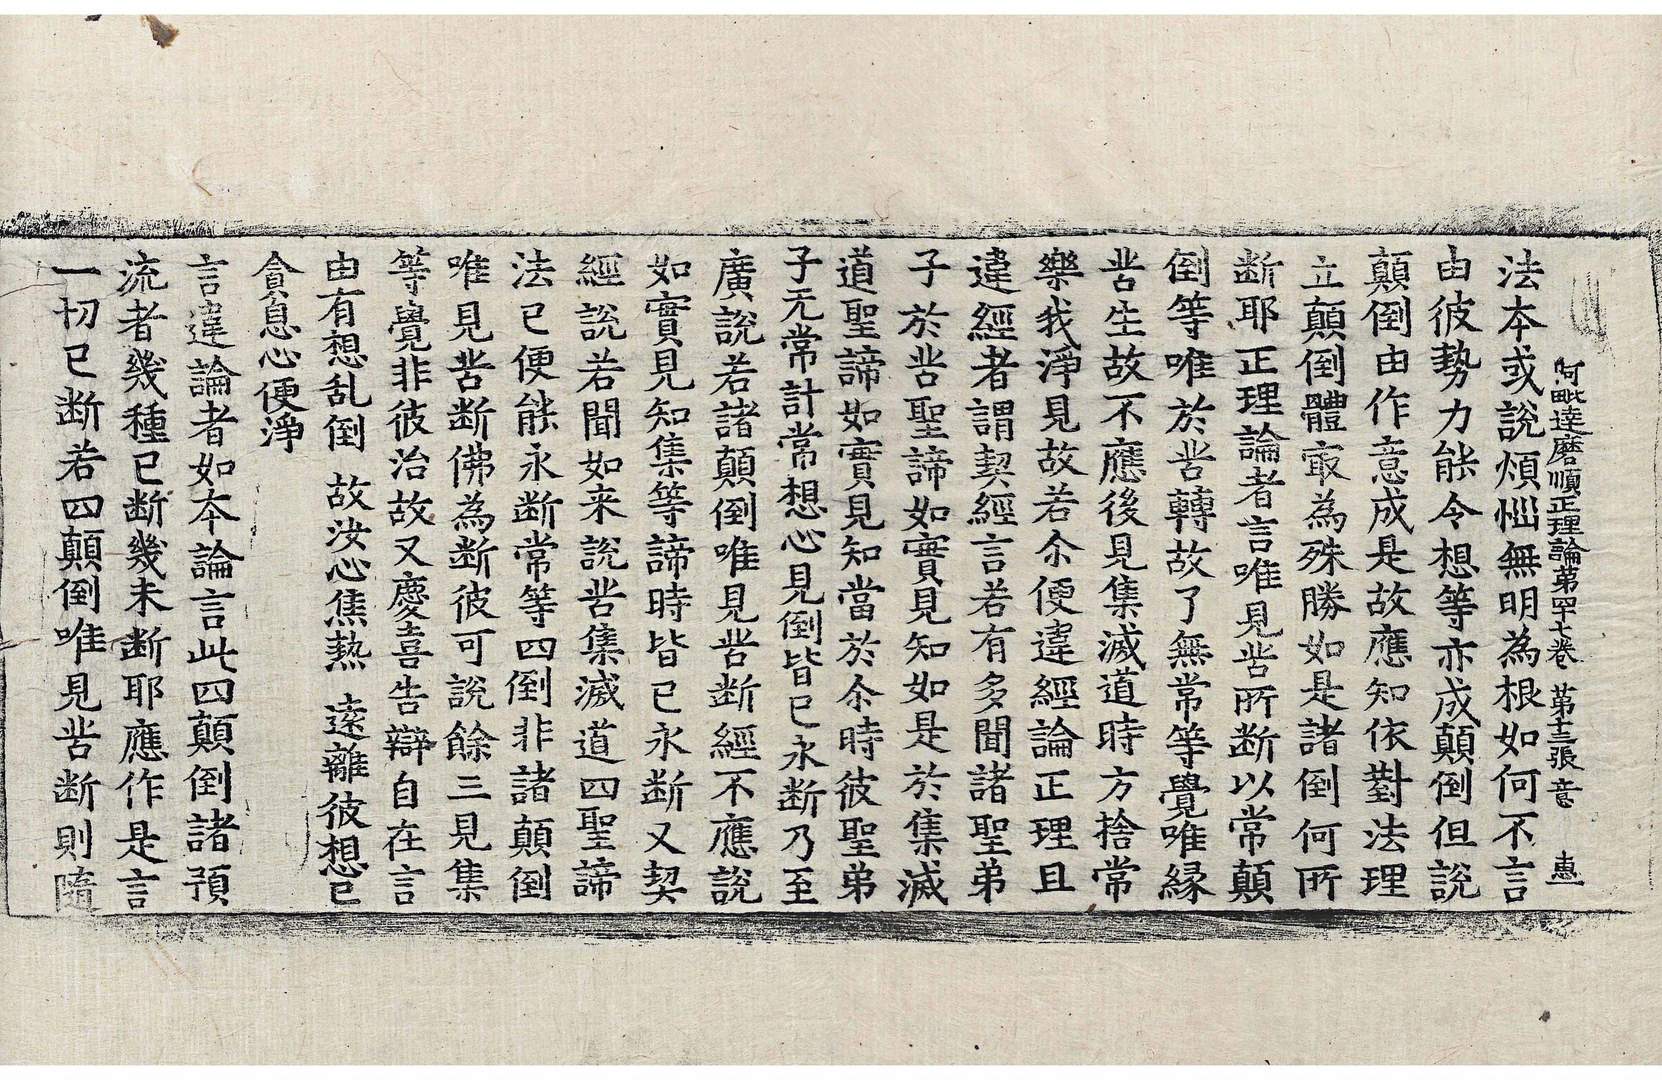 阿毗達磨順正理論第四十七卷 第十三張 意 惠一
法本或說煩惱無明為根如何不言
由彼勢力能令想等亦成顛倒但說
顛倒由作意成是故應知依對法理
立顛倒體㝡為殊勝如是諸倒何所
断耶正理論者言唯見苦所断以常顛
倒等唯於苦轉故了無常等覺唯緣
苦生故不應後見集滅道時方捨常
樂我淨見故若尒便違經論正理且
違經者謂契經言若有多聞諸聖弟
子於苦聖諦如實見知如是於集滅
道聖諦如實見知當於尒時彼聖弟
子无常計常想心見倒皆已永断乃至
廣說若諸顛倒唯見苦断經不應說
如實見知集等諦時皆已永断又契
經說若聞如来說苦集滅道四聖諦
法已便能永断常等四倒非諸顛倒
唯見苦断佛為断彼可說餘三見集
等覺非彼治故又慶喜告辯自在言
由有想乱倒 故汝心焦熱 遠離彼想已
貪息心便淨
言違論者如本論言此四顛倒諸預
流者幾種已断幾未断耶應作是言
一切已断若四顛倒唯見苦断則隨